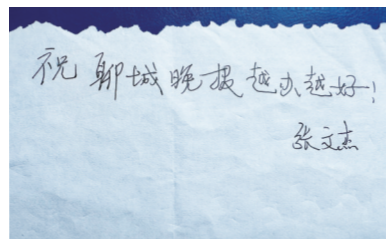 祝聊城晚报越办越好!
张文杰